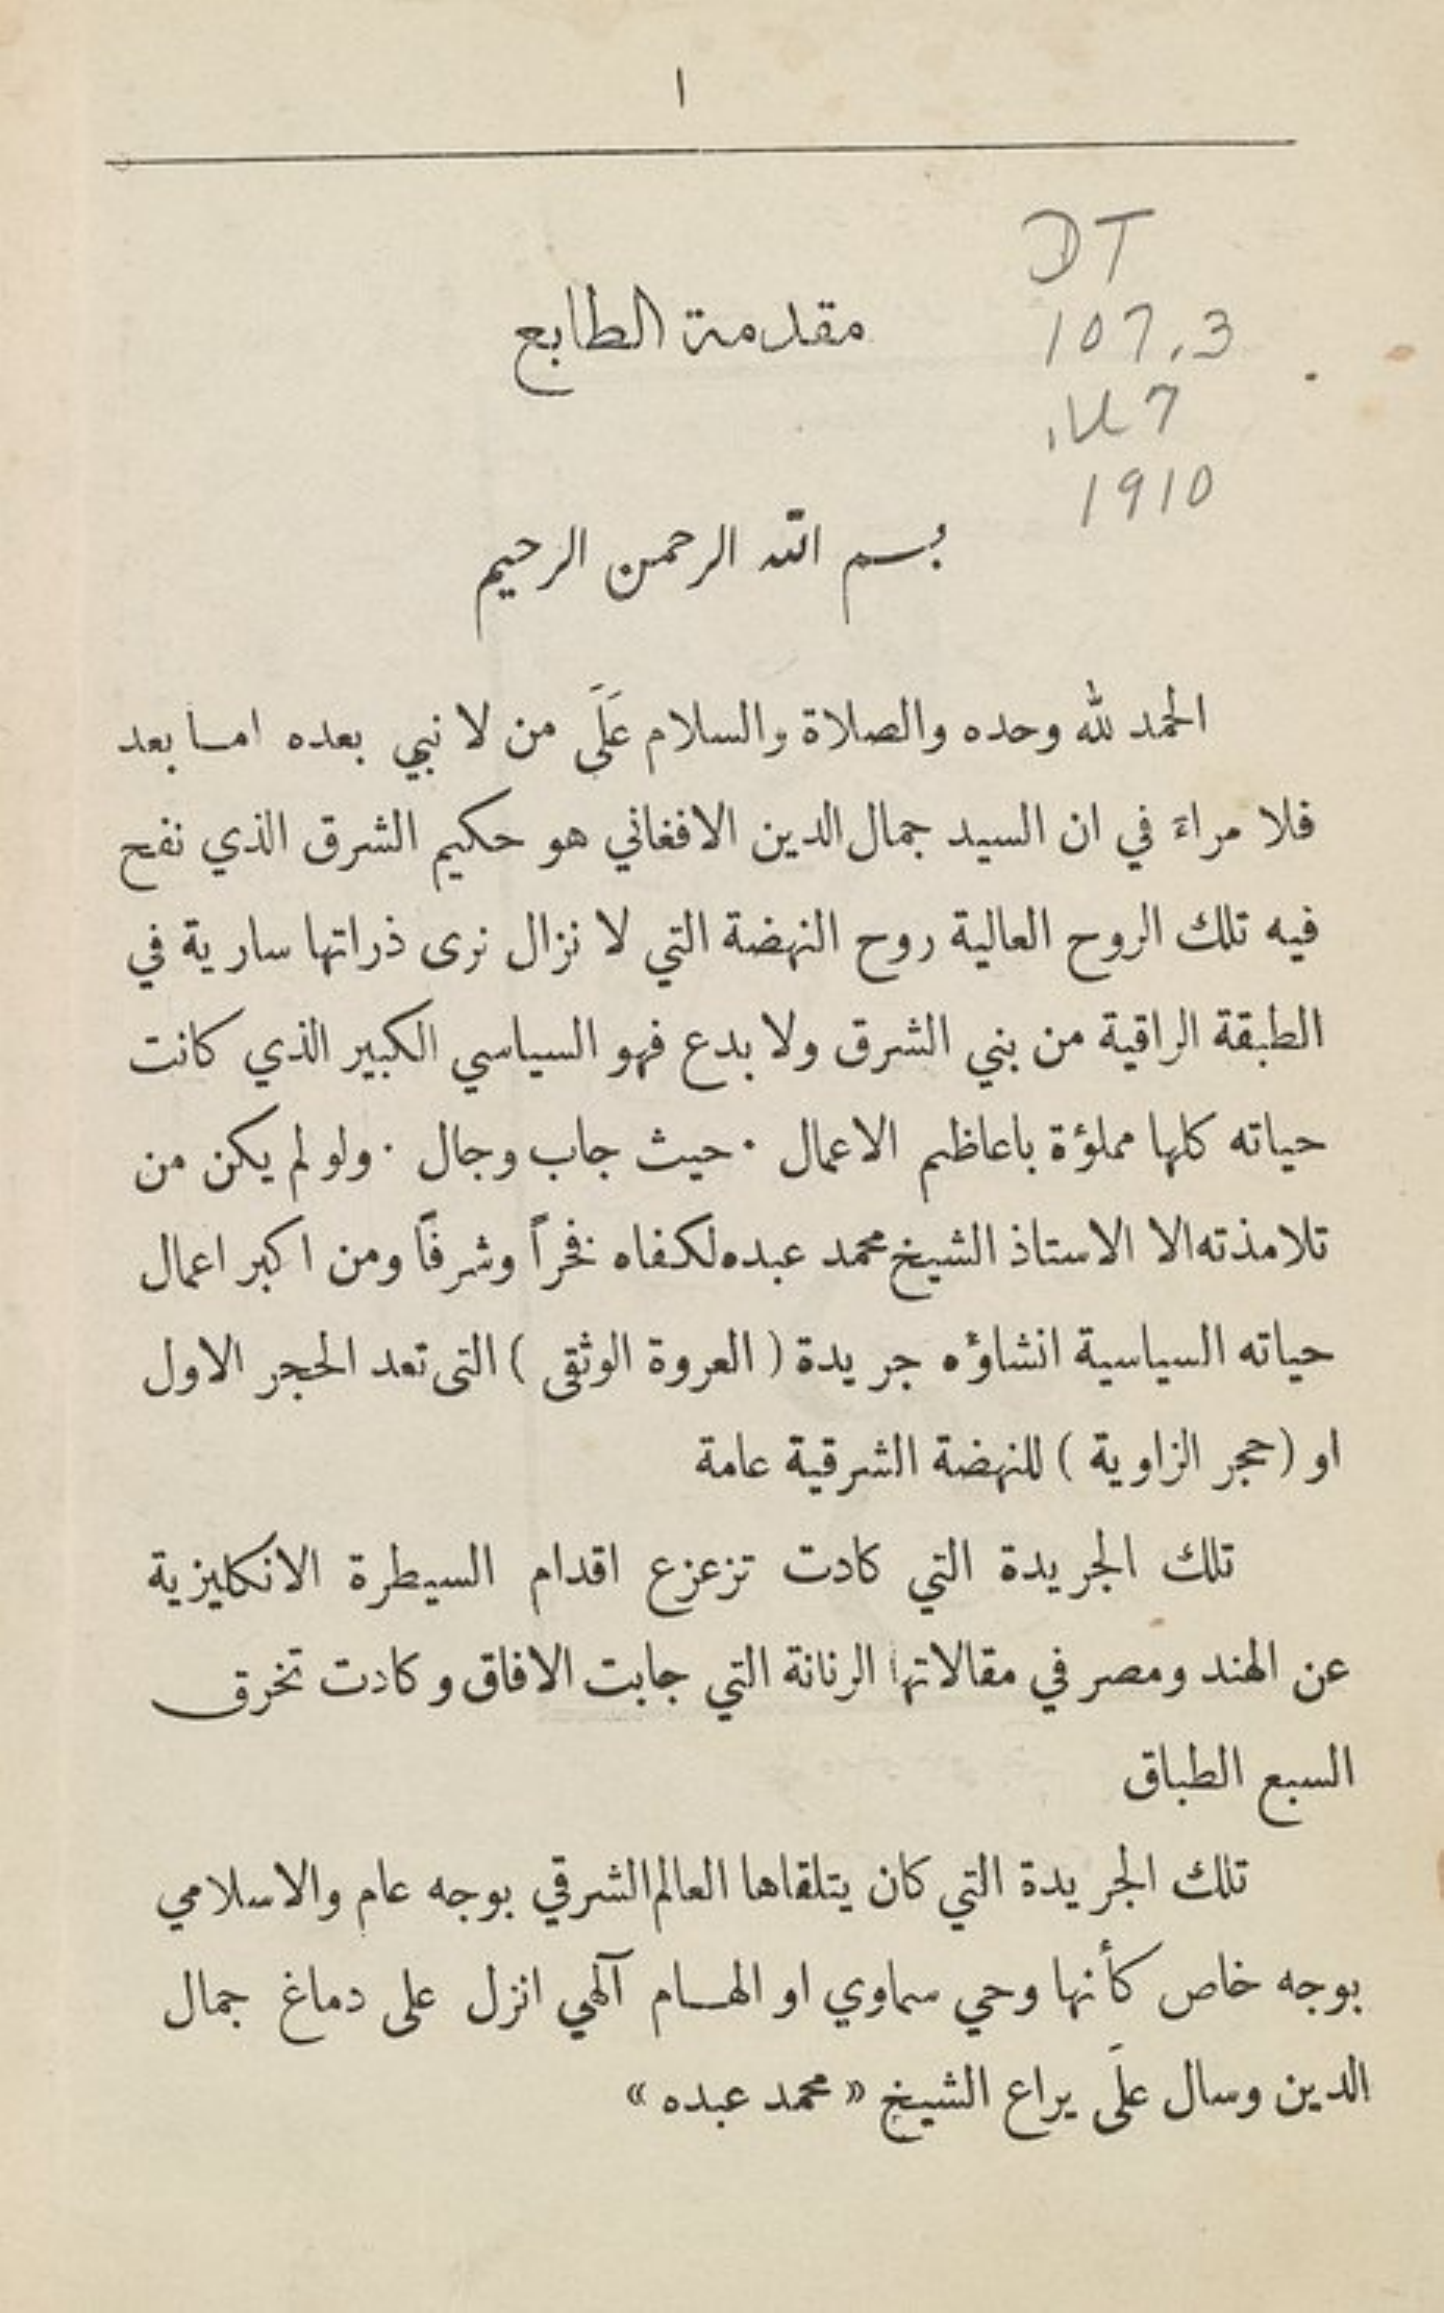 ١
DT
107.3
.U7
1910
مقدمة الطابع
بسم الله الرحمن الرحيم
الحمد لله وحده والصلاة والسلام عَلَى من لا نبي بعده اما بعد
فلا مراءَ في ان السيد جمال الدين الافغاني هو حكيم الشرق الذي نفح
فيه تلك الروح العالية روح النهضة التي لا نزال نرى ذراتها سارية في
الطبقة الراقية من بني الشرق ولا بدع فهو السياسي الكبير الذي كانت
حياته كلها مملؤة باعاظم الاعمال · حيث جاب وجال · ولو لم يكن من
تلامذته الا الاستاذ الشيخ محمد عبده لكفاه فخراً وشرفاً ومن اكبر اعمال
حياته السياسية انشاؤه جريدة ( العروة الوثقى ) التى تعد الحجر الاول
او ( حجر الزاوية ) للنهضة الشرقية عامة
تلك الجريدة التي كادت تزعزع اقدام السيطرة الانكليزية
عن الهند ومصر في مقالاتها الرنانة التي جابت الافاق وكادت تخرق
السبع الطباق
تلك الجريدة التي كان يتلقاها العالم الشرقي بوجه عام والاسلامي
بوجه خاص كأنها وحي سماوي او الهام آلهي انزل على دماغ جمال
الدين وسال علَى يراع الشيخ « محمد عبده »